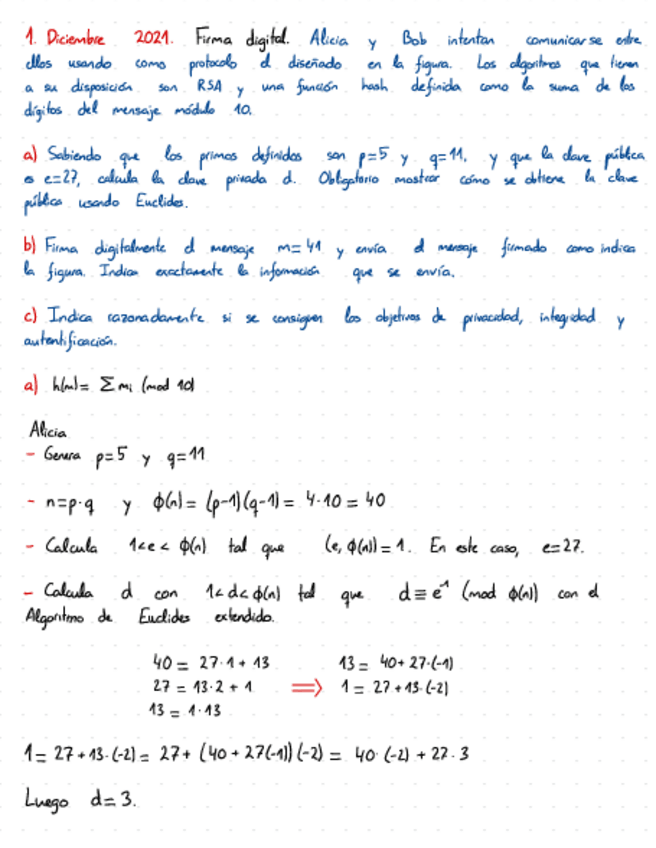 1. Diciembre 2021. Firma digital. Alicia y Bob intentan comunicarse entre
ellos usando como protocolo el diseñado en la figura. Los algoritmos que tienen
a su disposición son RSA y una función hash definida como la suma de los
dígitos del mensaje módulo 10.
a) Sabiendo que los primos definidos son p=5 y q=11, y que la clave pública
es e=27, calcula la clave privada d. Obligatorio mostrar cómo se obtiene la clave
pública usando Euclides.
b) Firma digitalmente el mensaje m=41 y envía el mensaje firmado como indica
la figura. Indica exactamente la información que se envía.
c) Indica razonadamente si se consiguen los objetivos de privacidad, integridad y
autentificación.
a) h(m)= Σmi (mod 10)
Alicia
- Genera p=5 y q=11
- n=p·q y ϕ(n)= (p-1)(q-1)= 4·10= 40
- Calcula 1<e<ϕ(n) tal que (e, ϕ(n))=1. En este caso, e=27.
- Calcula d con 1<d<ϕ(n) tal que d≡e⁻¹ (mod ϕ(n)) con el
Algoritmo de Euclides extendido.
40 = 27·1 + 13 13 = 40+ 27·(-1)
27 = 13·2 + 1 ⟹ 1 = 27 + 13·(-2)
13 = 1·13
1= 27 + 13·(-2) = 27+ (40 + 27(-1))(-2) = 40·(-2) + 27·3
Luego d=3.